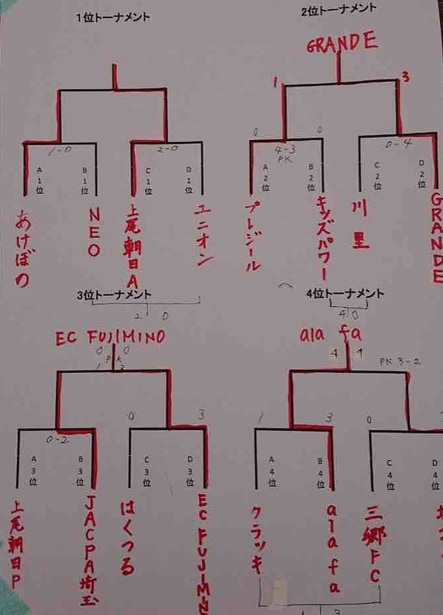 1位トーナメント
1-0
2-0
A1位
B1位
C1位
D1位
あけぼの
NEO
上尾朝日A
ユニオン
2位トーナメント
GRANDE
1
3
0
0
4-3
PK
0-4
A2位
B2位
C2位
D2位
プレジール
キッズパワー
川里
GRANDE
3位トーナメント
2
0
EC FUJIMINO
0
0
PK
0-2
0
3
A3位
B3位
C3位
D3位
上尾朝日P
JACPA埼玉
はくつる
EC FUJIMIN
4位トーナメント
4
0
ala fa
4
4
PK 3-2
1
3
0
A4位
B4位
C4位
D4位
クラッキ
ala fa
三郷FC